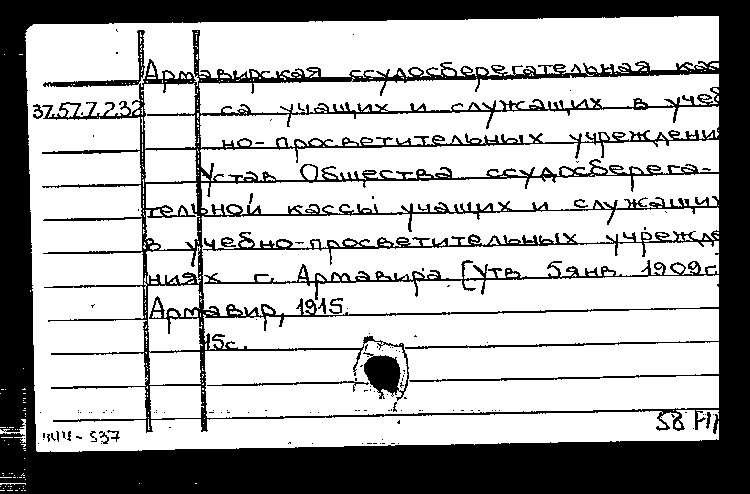 Армавирская ссудосберегательная кас
37.57.7.2.32 са учащих и служащих в учеб
но-просветительных учреждени
Устав Общества ссудосберега-
тельной кассы учащих и служащих
в учебно-просветительных учрежде
ниях г. Армавира. [Утв. 5 янв. 1909г
Армавир, 1915.
15с.
58
444-537